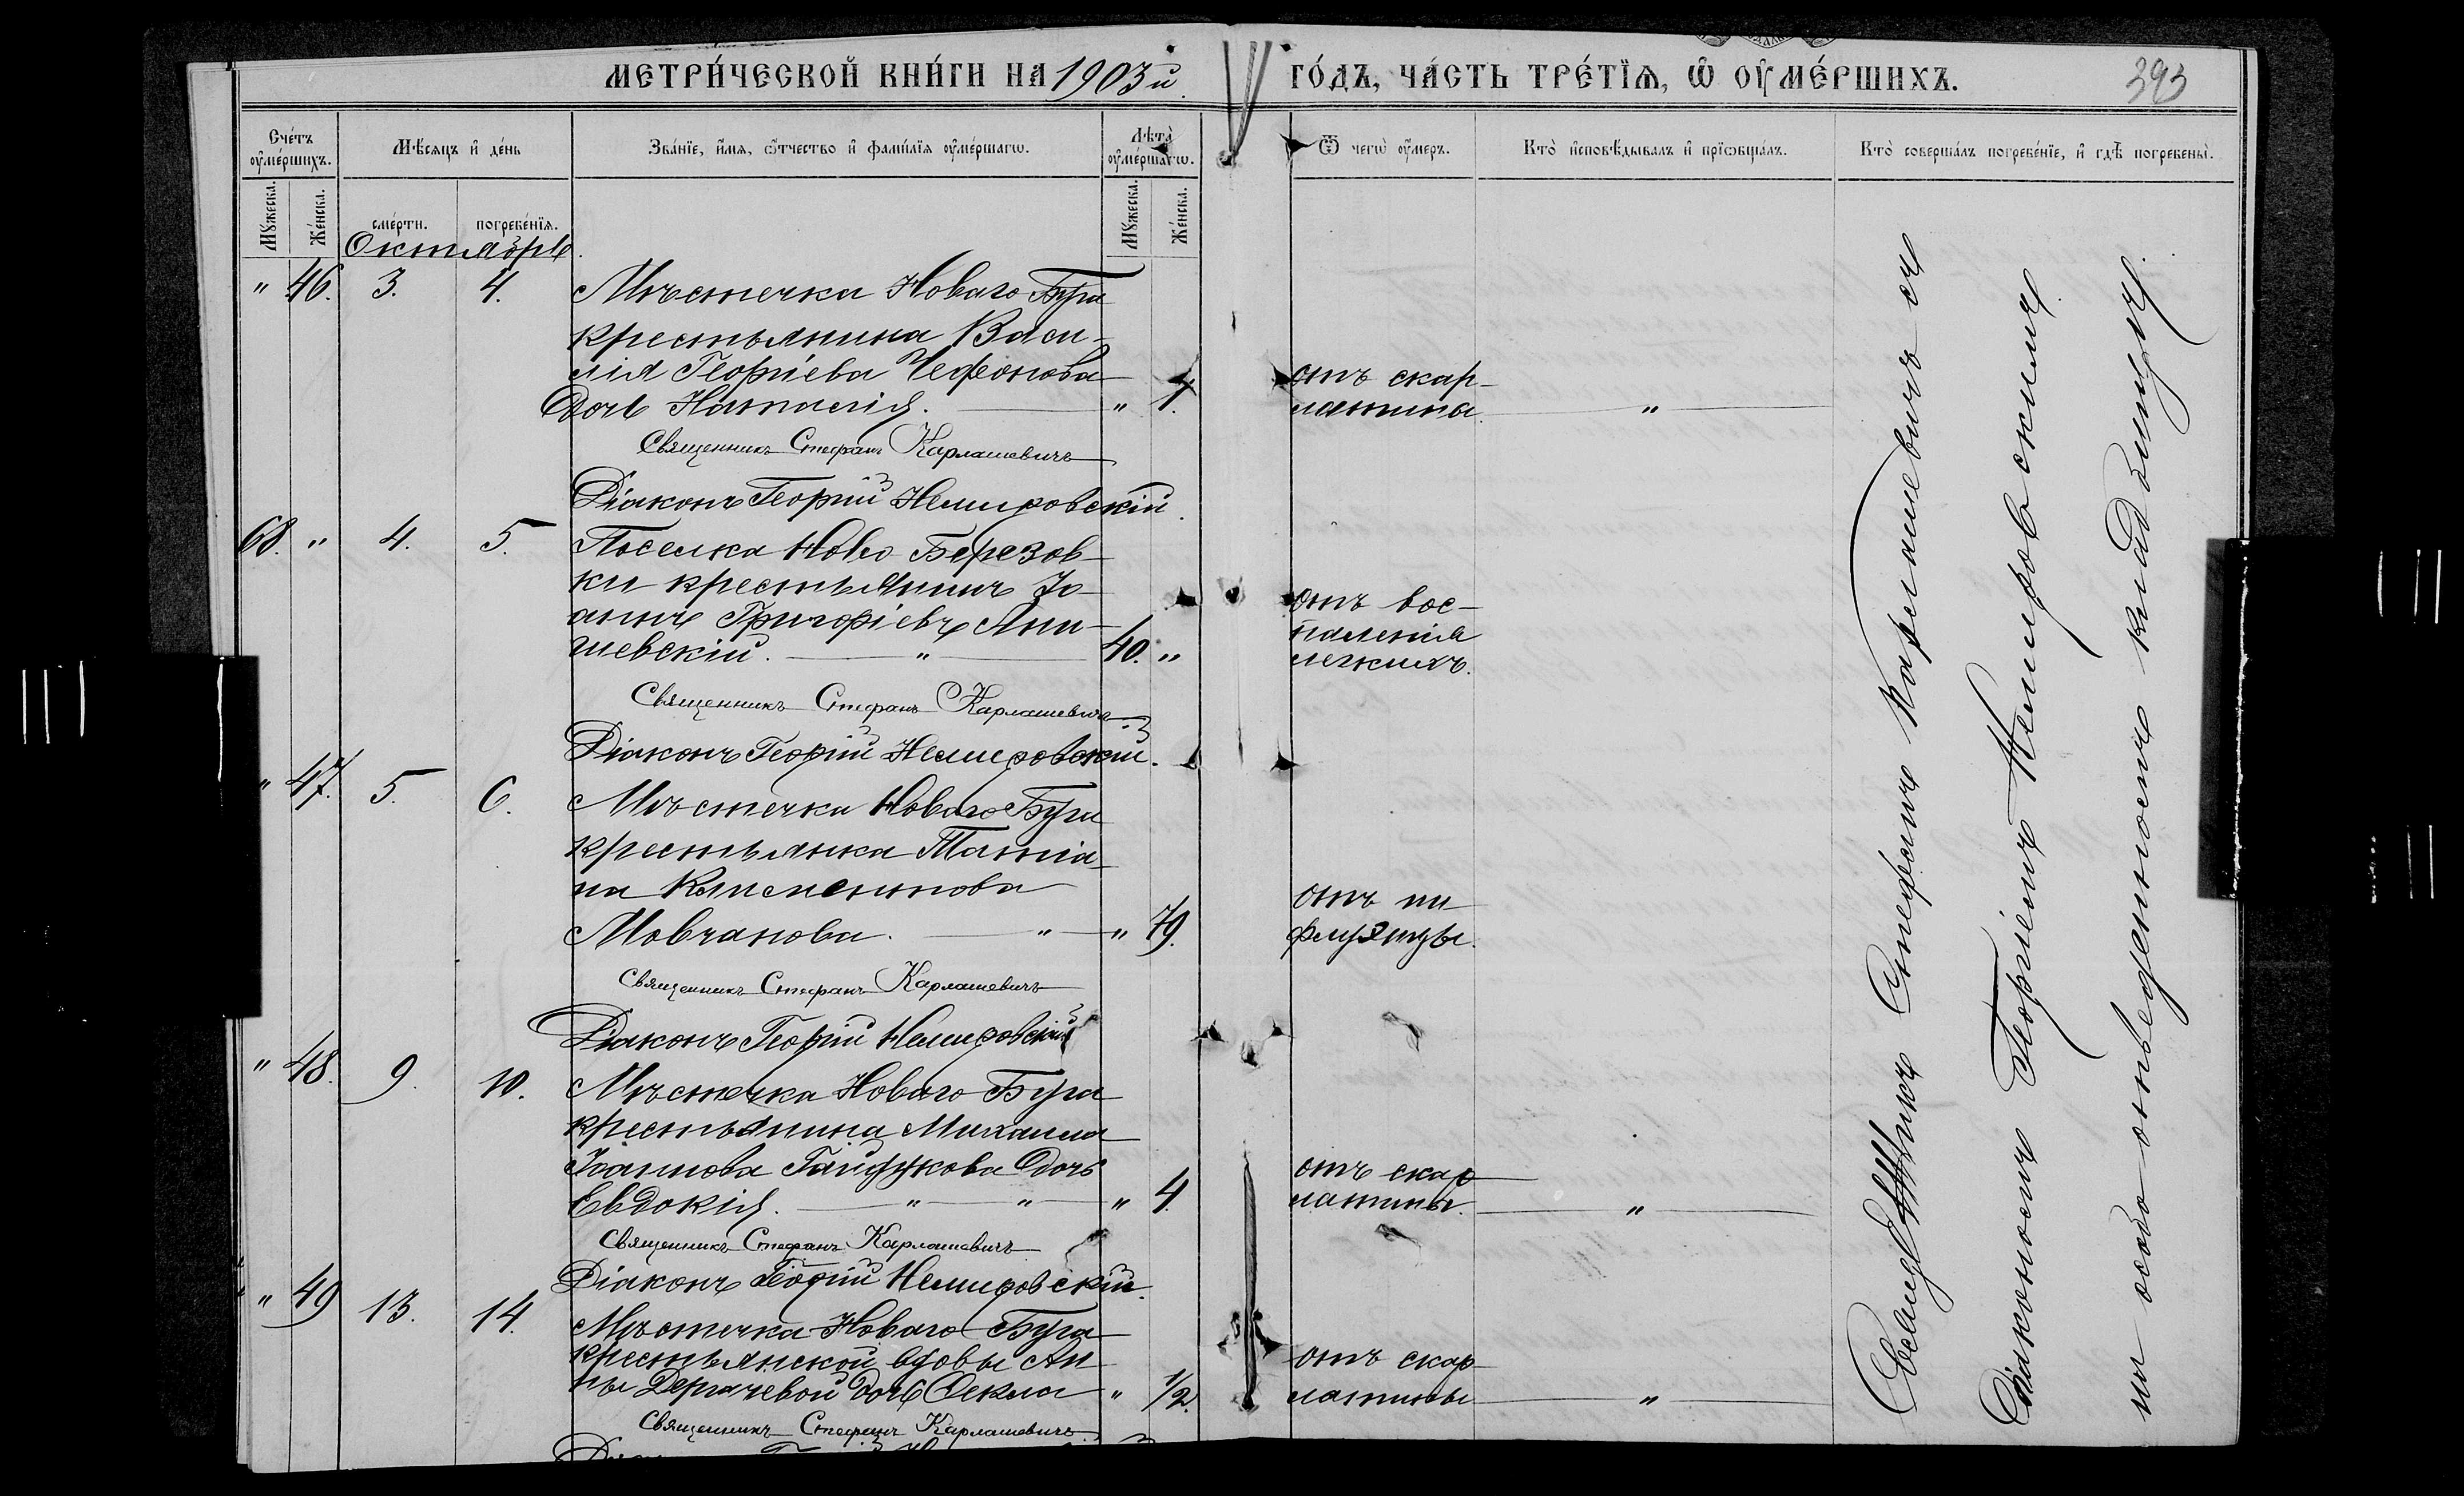 МЕТРИ́ЧЕСКОЙ КНИ́ГИ НА 1903 й
ГО́ДЪ, ЧА́СТЬ ТРЕ́ТЇѦ, Ѡ ОУМЕ́РШИХЪ.
393
Сче́тъ оуме́ршихъ.
Мѣ́сяцъ и де́нь
Зва́нїе, и́мѧ, ѻ҆́тчество и фами́лїѧ оуме́ршагѡ.
Лѣта̀ оуме́ршагѡ.
Ѿ чегѡ̀ оу́меръ.
Кто̀ и҆сповѣ́дывалъ и прїѡбща́лъ.
Кто̀ соверша́лъ погребе́нїе, и гдѣ̀ погребены̀.
Мꙋ́жеска.
Же́нска.
сме́рти.
погребе́нїѧ.
Мꙋ́жеска.
Же́нска.
Октябрь.
" 46. 3. 4. Мѣстечка Новаго Буга
крестьянина Васи-
лія Георгіева
Дочь Наталія. " 1.
отъ скар-
латина. "
Священникъ Стефанъ Карлашевичъ
Діаконъ Георгій Немировскій.
68. " 4. 5. Поселка Ново Березов-
ки крестьянинъ Іо-
аннъ Григоріевъ Яни-
шевскій. " 40. "
отъ вос-
паленія
легкихъ.
Священникъ Стефанъ Карлашевичъ
Діаконъ Георгій Немировскій.
" 47. 5. 6. Мѣстечка Новаго Буга
крестьянка Татіа-
на Климентова
Мовчанова. " " 79.
отъ ин-
флуэнцы.
Священникъ Стефанъ Карлашевичъ
Діаконъ Георгій Немировскій
" 48. 9. 10. Мѣстечка Новаго Буга
крестьянина Михаила
Іоаннова Гайдукова дочь
Евдокія. " " " 4.
отъ скар
латины. "
Священникъ Стефанъ Карлашевичъ
Діаконъ Георгій Немировскій.
" 49 13. 14. Мѣстечка Новаго Буга
крестьянской вдовы Ан-
ны Дергачевой дочь Ѳекла " 1/2.
отъ скар
латины "
Священникъ Стефанъ Карлашевичъ.
Священникъ Стефанъ Карлашевичъ съ
Діакономъ Георгіемъ Немировскимъ
на особо отведенномъ кладбищѣ.